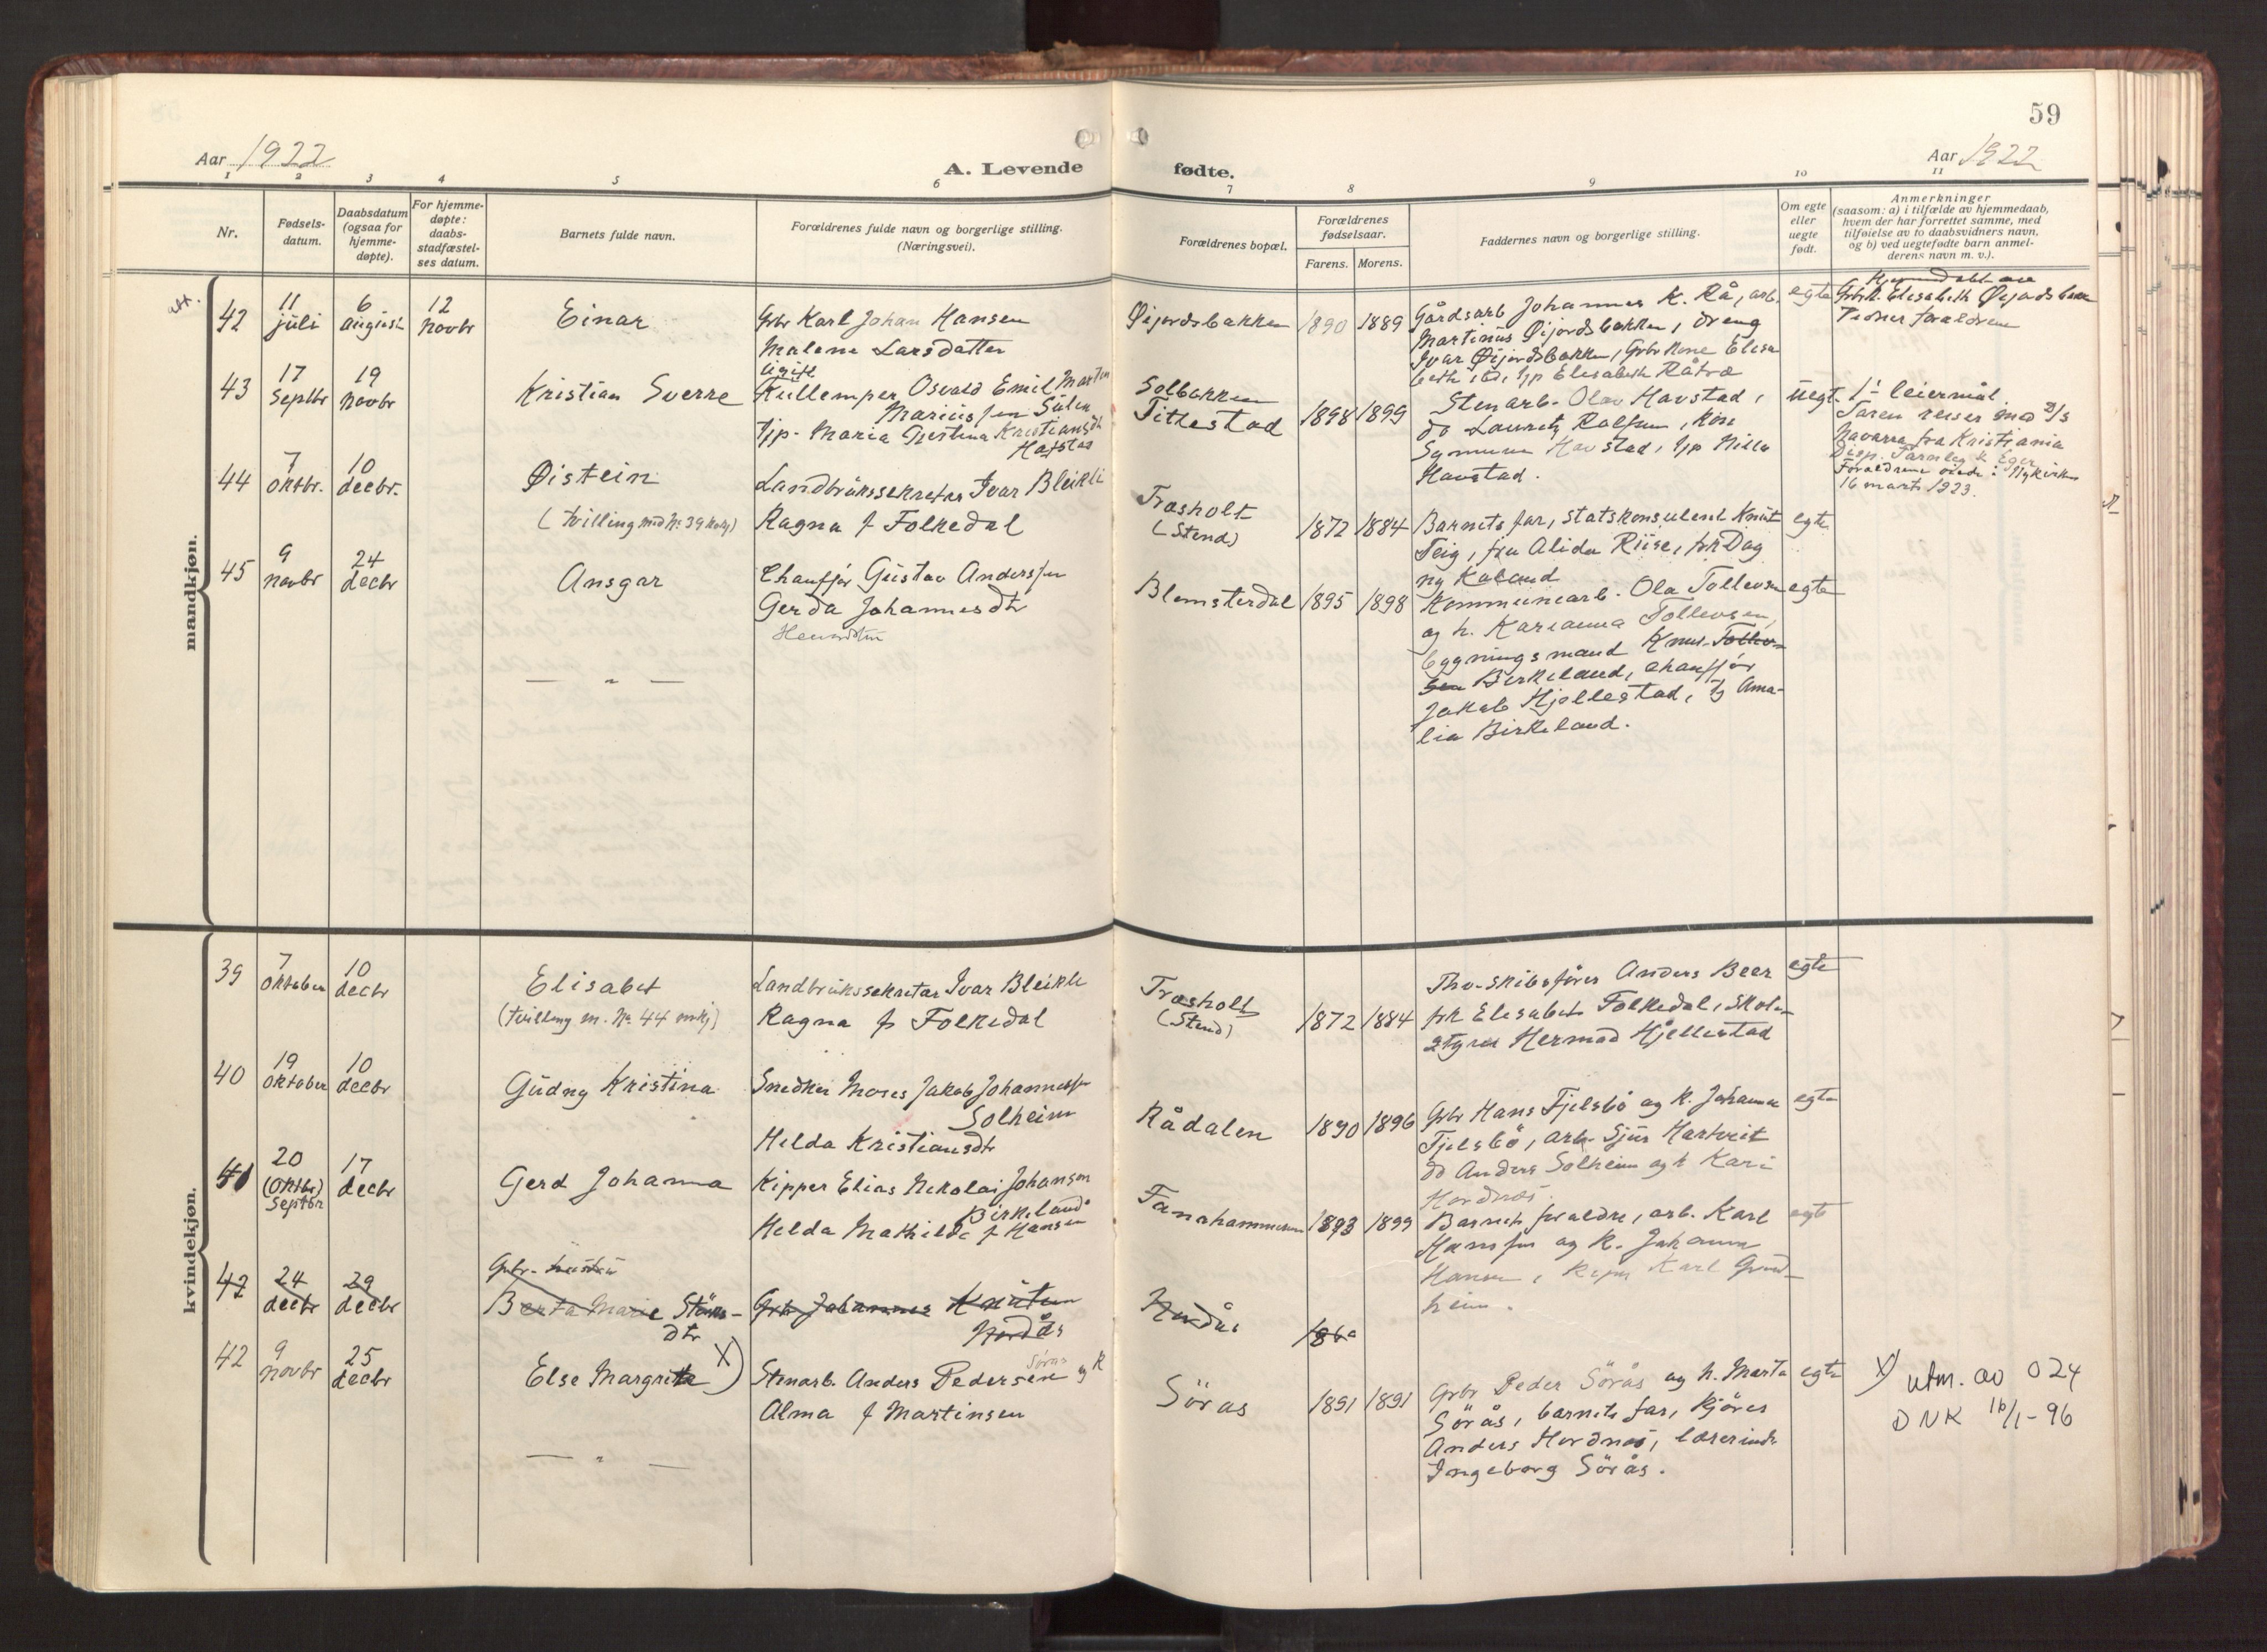 59
Aar 1922
A. Levende
fødte.
Aar 1922
1 2 3 4 5 6 7 8 9 10 11
Nr.
Fødsels-
datum.
Daabsdatum
(ogsaa for
hjemme-
døpte).
For hjemme-
døpte:
daabs-
stadfæstel-
ses datum.
Barnets fulde navn.
Forældrenes fulde navn og borgerlige stilling.
(Næringsvei).
Forældrenes bopæl.
Forældrenes
fødselsaar.
Farens. Morens.
Faddernes navn og borgerlige stilling.
Om egte
eller
uegte
født.
Anmerkninger
(saasom: a) i tilfælde av hjemmedaab,
hvem der har forrettet samme, med
tilføielse av to daabsvidners navn,
og b) ved uegtefødte barn anmel-
derens navn m. v.).
mandkjøn.
42
11
juli
6
august
12
novbr
Einar
Grbr Karl Johan Hansen
Malene Larsdatter
Øijordsbakken
1890 1889
Gårdsarb Johannes K. Rå, arb.
Martinus Øijordsbakken, dreng
Ivar Øijordsbakken, Grbr kone Elisa
beth ibd, tjp Elisabeth Råtræ
egte
Hjemmedøbt av
Grbr.k. Elisabeth Øijordsbakken
Vidner forældrene
43
17
Septbr
19
Novbr
Kristian Sverre
ugift
Kullemper Osvald Emil Martin
Mariussen Sulen
tjp. Maria Gjertina Kristiansdt
Hafstad
Solbakken
Tittestad
1898 1899
Stenarb. Olav Havstad,
do Lauritz Ralfsen, kone
Synneve Havstad, tjp Nilla
Havstad.
uegt.
1ste leiermål.
Faren reiser med D/S
Navarra fra Kristiania
Forældrene viede i Nykirken
16 marts 1923.
44
7
oktbr.
10
decbr.
Øistein
(tvilling med No 39 kvkj)
Landbrukssekretær Ivar Bleikli
Ragna f Folkedal
Træsholt
(Stend)
1872 1884
Barnets far, statskonsulent Knut
Teig, fru Alida Riise, frk Dag
ny Kaland
egte
45
9
novbr
24
decbr
Ansgar
Chauffør Gustav Anderssen
Gerda Johannesdtr
Blomsterdal
1895 1898
Kommunearb. Ola Tollevsen
og h. Karianna Tollevsen,
bygningsmand Knut Tollev-
sen Birkeland, chauffør
Jakob Hjellestad, tj Ama-
lia Birkeland.
egte
— " —
kvindekjøn.
39
7
oktober
10
decbr
Elisabet
(tvilling m. No 44 mkj)
Landbrukssekretær Ivar Bleikli
Ragna f Folkedal
Træsholt
(Stend)
1872 1884
Fhv. skibsfører Anders Beer
frk Elisabet Folkedal, skole-
styrer Hermod Hjellestad
egte
40
19
oktober
10
decbr
Gudny Kristina
Snedker Moses Jakob Johannessen
Solheim
Helda Kristiansdtr
Rådalen
1890 1896
Grbr Hans Fjelsbö og k. Johanna
Fjelsbö, arb. Sjur Hartveit
do Anders Solheim og k Kari
Hordnes.
egte
41
20
(oktbr)
Septbr
17
decbr
Gerd Johanna
Kipper Elias Nikolai Johansen
Birkeland
Helda Mathilde f Hansen
Fanahammeren
1893 1899
Barnets forældre, arb. Karl
Hanssen og k. Johanna
Hansen, kipper Karl Grind-
heim.
egte
42
24
decbr
29
decbr
Berta Marie
dtr
Grbr Johannes Knutsen
Nordås
Nordås
42
9
novbr
25
decbr
Else Margrita X)
Stenarb. Anders Pedersen Sørås og k
Alma f Martinsen
Söras
1891 1891
Grbr Peder Sörås og h. Marta
Sörås, barnets far, kjörer
Anders Hordnes, lærerinde
Ingeborg Sörås.
egte
X) utm. av 024
DNK 16/1-96
— " —